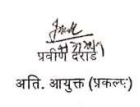 प्रवीण दराडे
अति. आयुक्त (प्रकल्प)